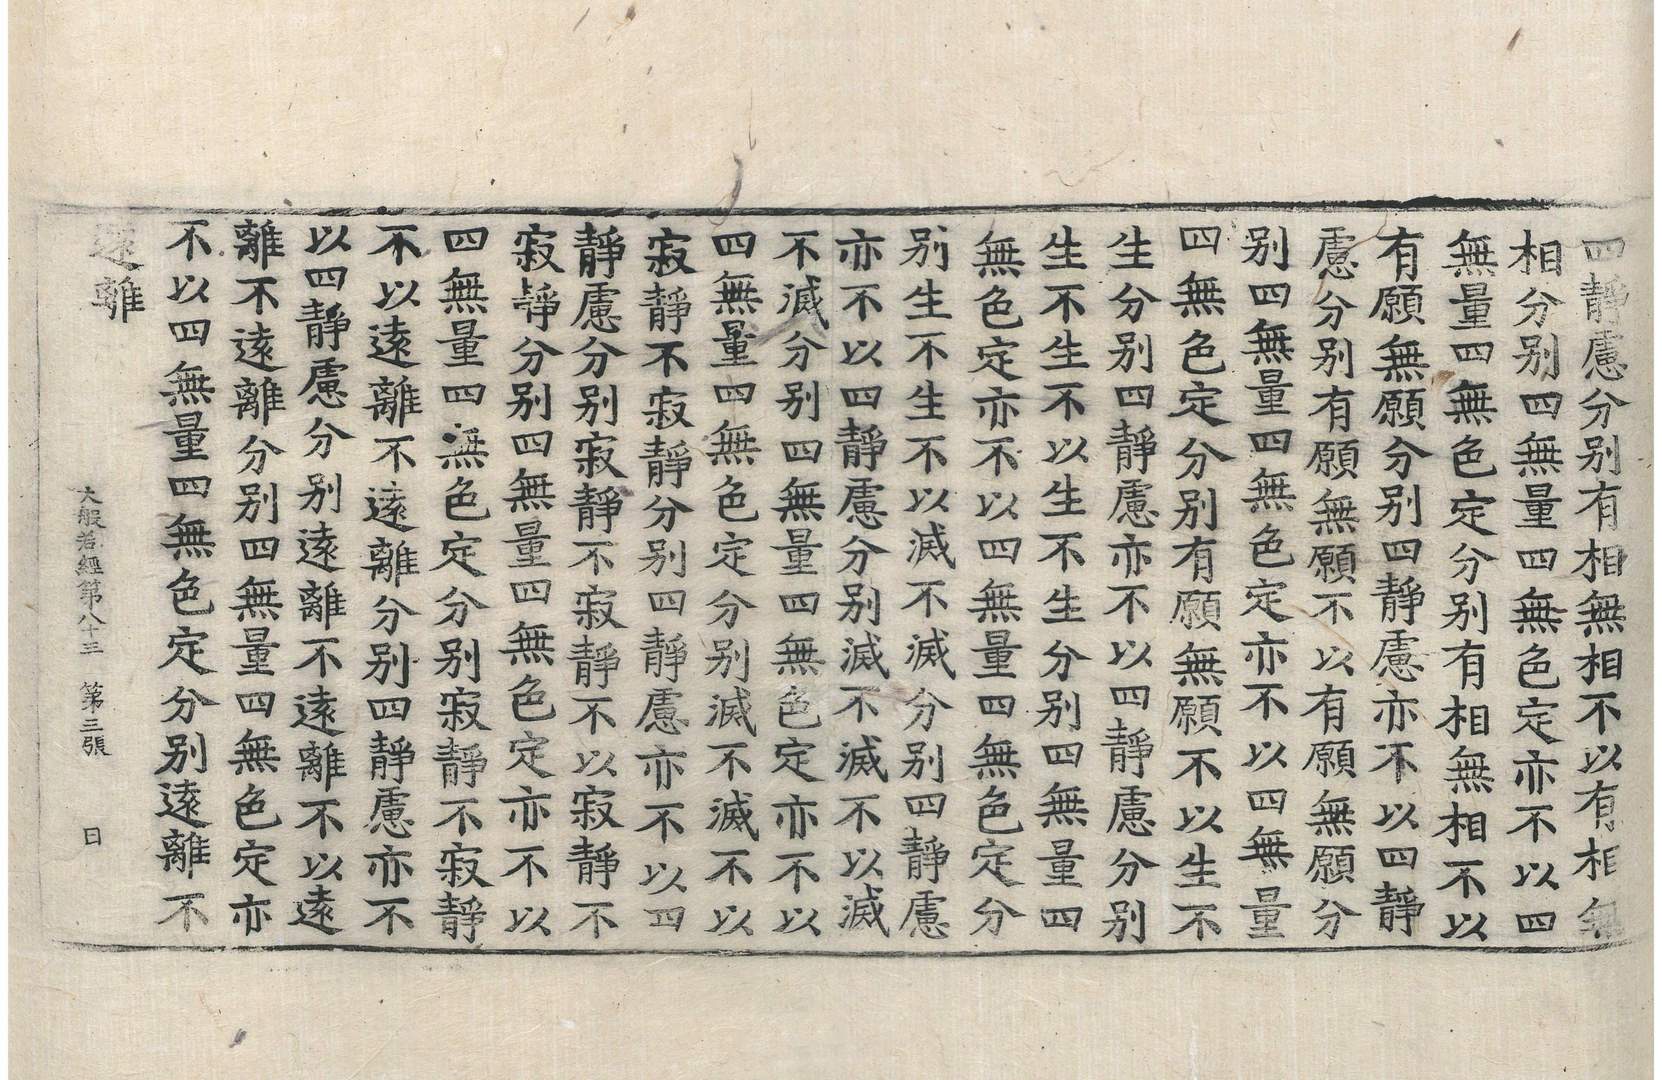 四靜慮分别有相無相不以有相無
相分别四無量四無色定亦不以四
無量四無色定分别有相無相不以
有願無願分别四靜慮亦不以四靜
慮分别有願無願不以有願無願分
别四無量四無色定亦不以四無量
四無色定分别有願無願不以生不
生分别四靜慮亦不以四靜慮分别
生不生不以生不生分别四無量四
無色定亦不以四無量四無色定分
别生不生不以滅不滅分别四靜慮
亦不以四靜慮分别滅不滅不以滅
不滅分别四無量四無色定亦不以
四無量四無色定分别滅不滅不以
寂靜不寂靜分别四靜慮亦不以四
靜慮分别寂靜不寂靜不以寂靜不
寂靜分别四無量四無色定亦不以
四無量四無色定分别寂靜不寂靜
不以遠離不遠離分别四靜慮亦不
以四靜慮分别遠離不遠離不以遠
離不遠離分别四無量四無色定亦
不以四無量四無色定分别遠離不
遠離
大般若經第八十三 第三張 日